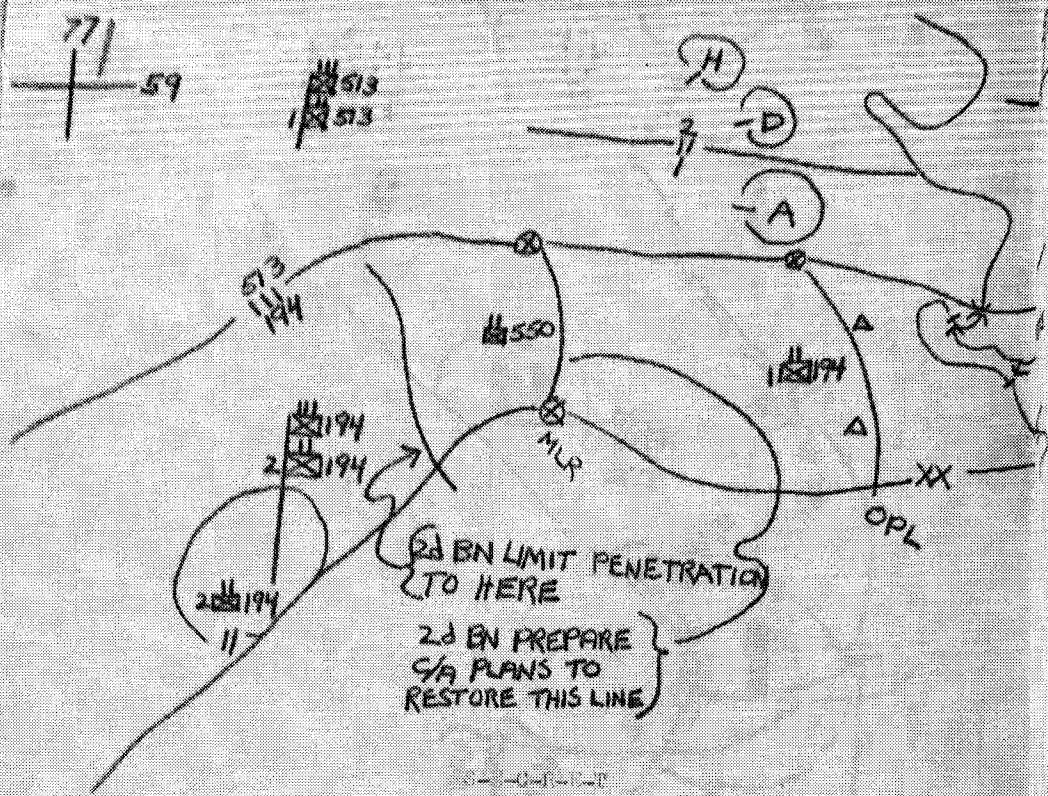 771
59
513
1 513
H
D
2
1
A
513
194
550
1 194
194
2 194
MLR
XX
OPL
2d BN LIMIT PENETRATION
TO HERE
2 194
11
2d BN PREPARE
C/A PLANS TO
RESTORE THIS LINE
S-E-C-R-E-T